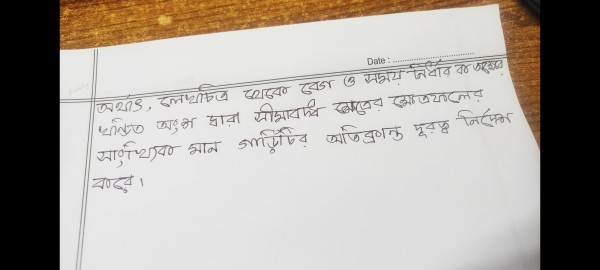 Date :
অর্থাৎ, লেখচিত্র থেকে বেগ ও সময় নির্বার বা অক্ষের
খন্ডিত অংশ দ্বারা সীমাবদ্ধ ক্ষেত্রের ক্ষেত্রফলের
সাংখ্যিক মান গাড়িটির অতিক্রান্ত দূরত্ব নির্দেশ
করে।